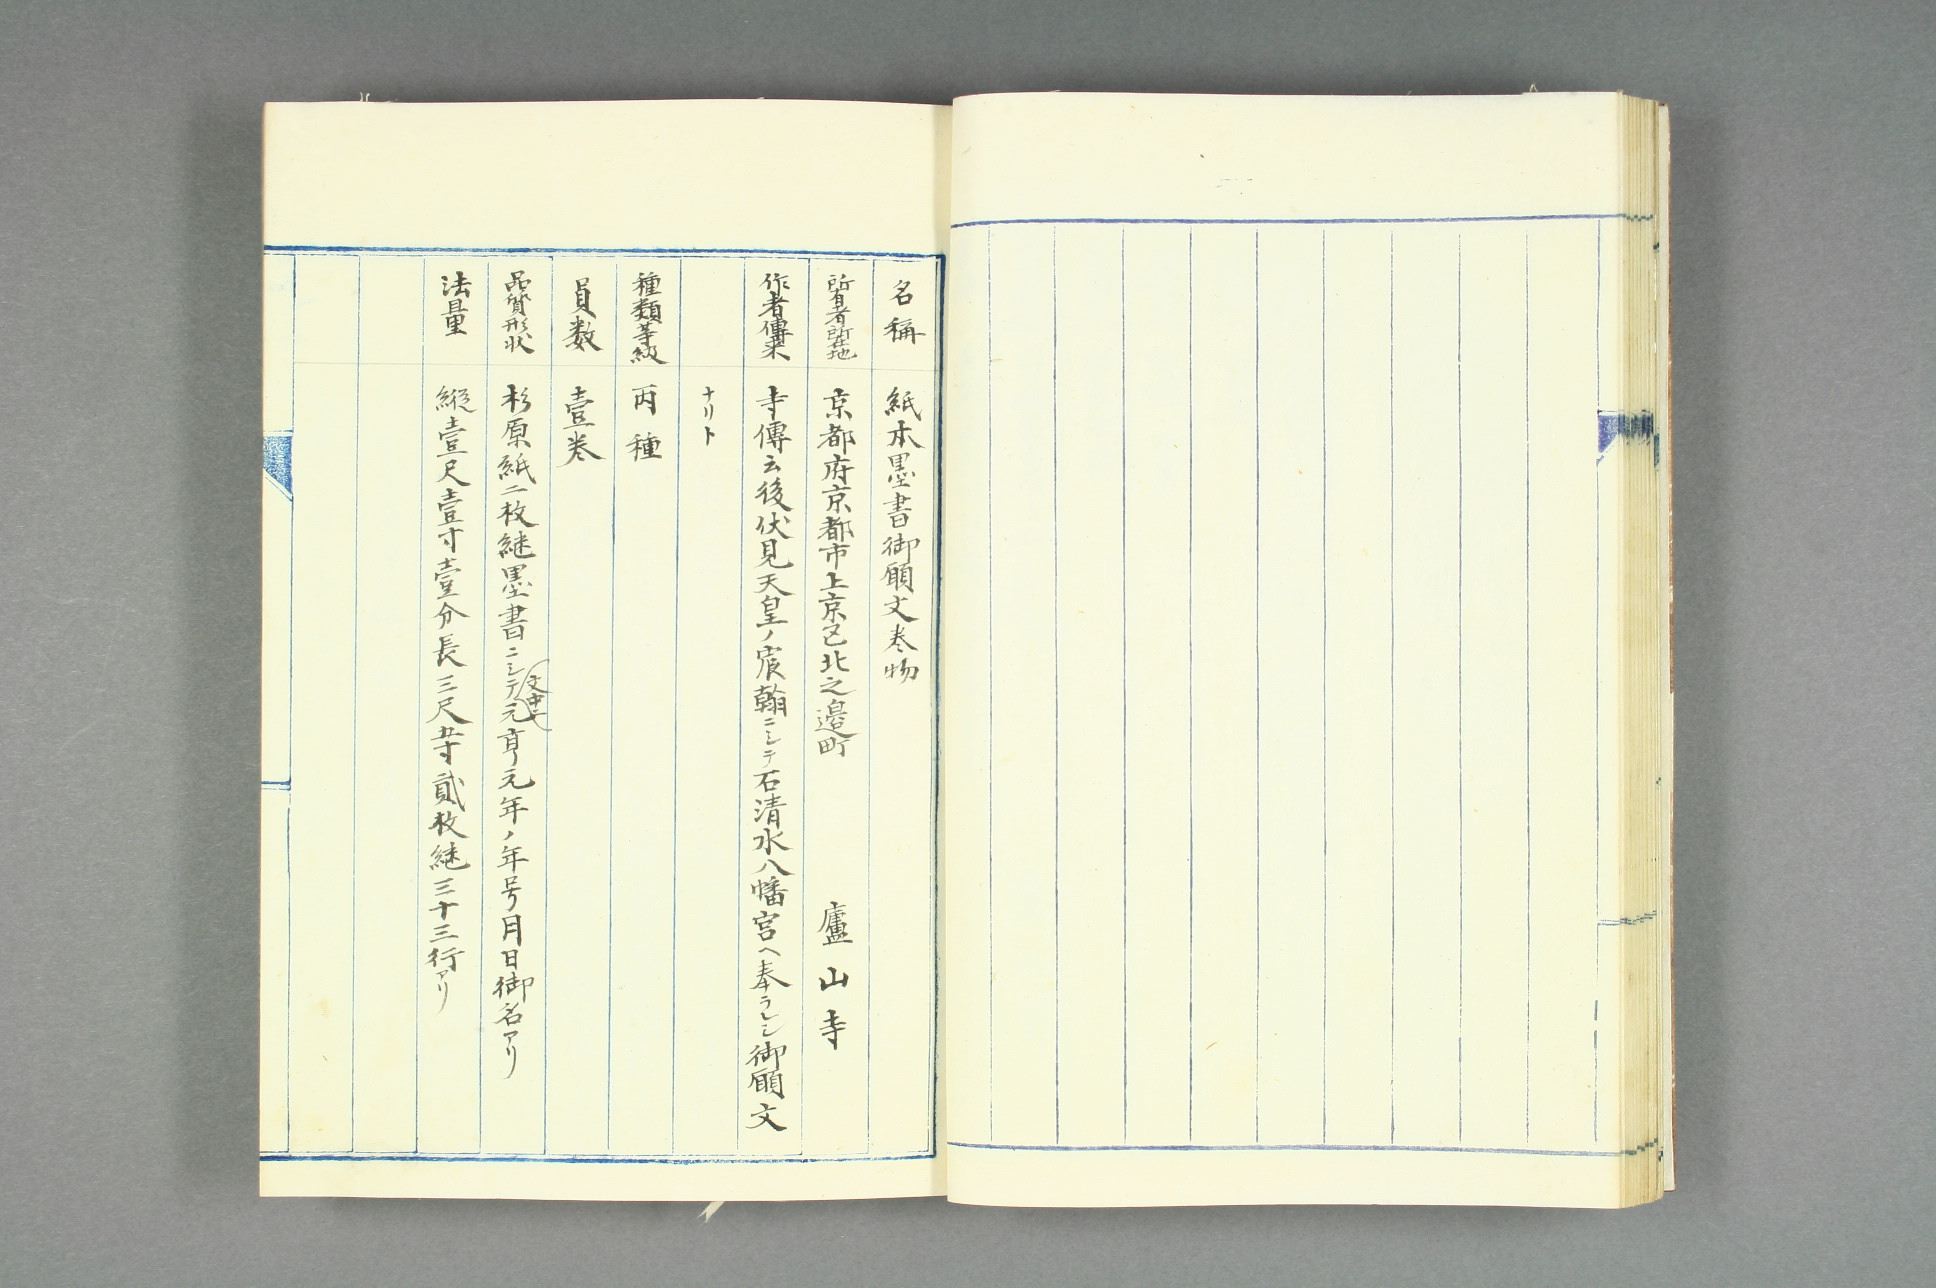 名稱　紙本墨書御願文巻物
所有者所在地　京都府京都市上京区北之邉町　廬山寺
作者傳来　寺傳云後伏見天皇ノ宸翰ニシテ石清水八幡宮ヘ奉ラレシ御願文
ナリト
種類等級　丙種
員数　壹巻
品質形状　杉原紙二枚継墨書ニシテ文中ニ元亨元年ノ年号月日御名アリ
法量　縦壹尺壹寸壹分長三尺五寸貳枚継三十三行アリ